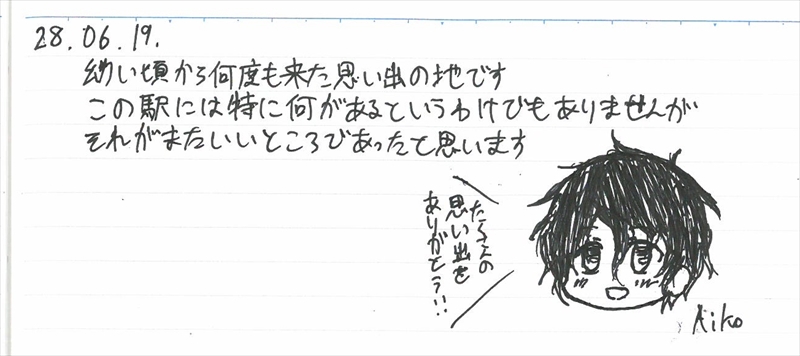 28.06.19.
幼い頃から何度も来た思い出の地です
この駅には特に何があるというわけでもありませんが
それがまたいいところであったと思います
たくさんの
思い出を
ありがとう!!
Aiko